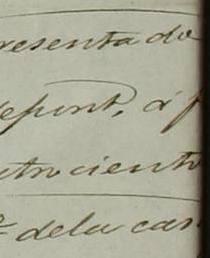 resenta do
depint, á f
atrociento
ª dela cas